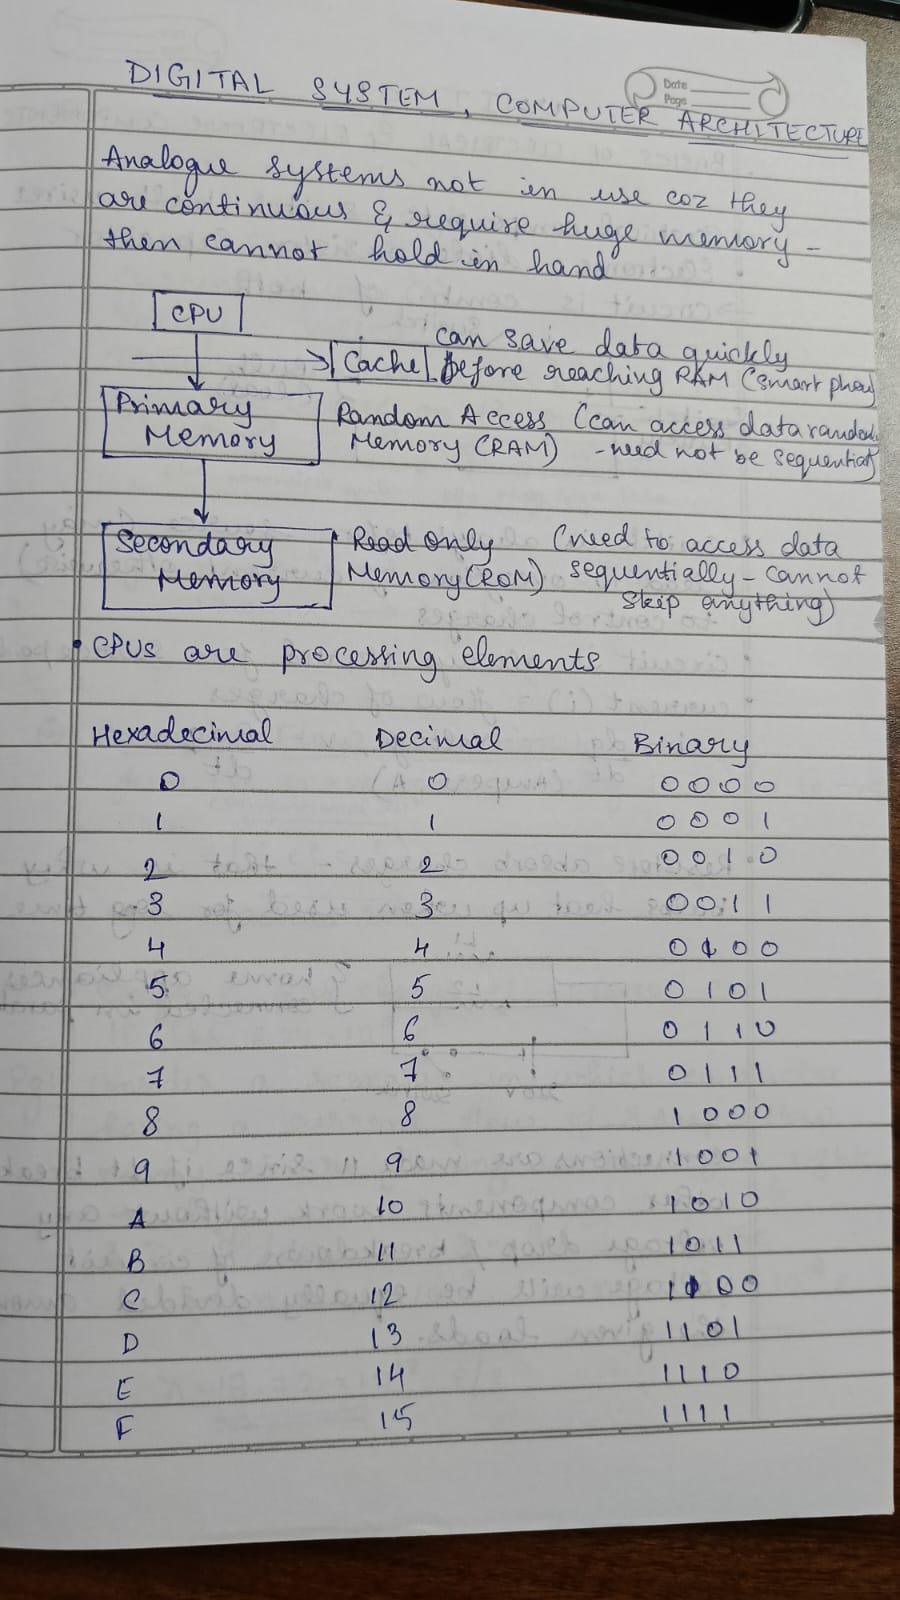 Date
Page
DIGITAL SYSTEM, COMPUTER ARCHITECTURE
Analogue systems not in use coz they
are continuous & require huge memory -
then cannot hold in hand
CPU
can save data quickly
Cache before reaching RAM (smart phone)
Primary Random Access (can access data
Memory Memory (RAM) - need not be sequential)
Secondary Read Only (need to access data
Memory Memory (ROM) sequentially - cannot
skip anything)
• CPUs are processing elements
Hexadecimal Decimal Binary
0 0 0000
1 1 0001
2 2 0010
3 3 0011
4 4 0100
5 5 0101
6 6 0110
7 7 0111
8 8 1000
9 9 1001
A 10 1010
B 11 1011
C 12 1100
D 13 1101
E 14 1110
F 15 1111